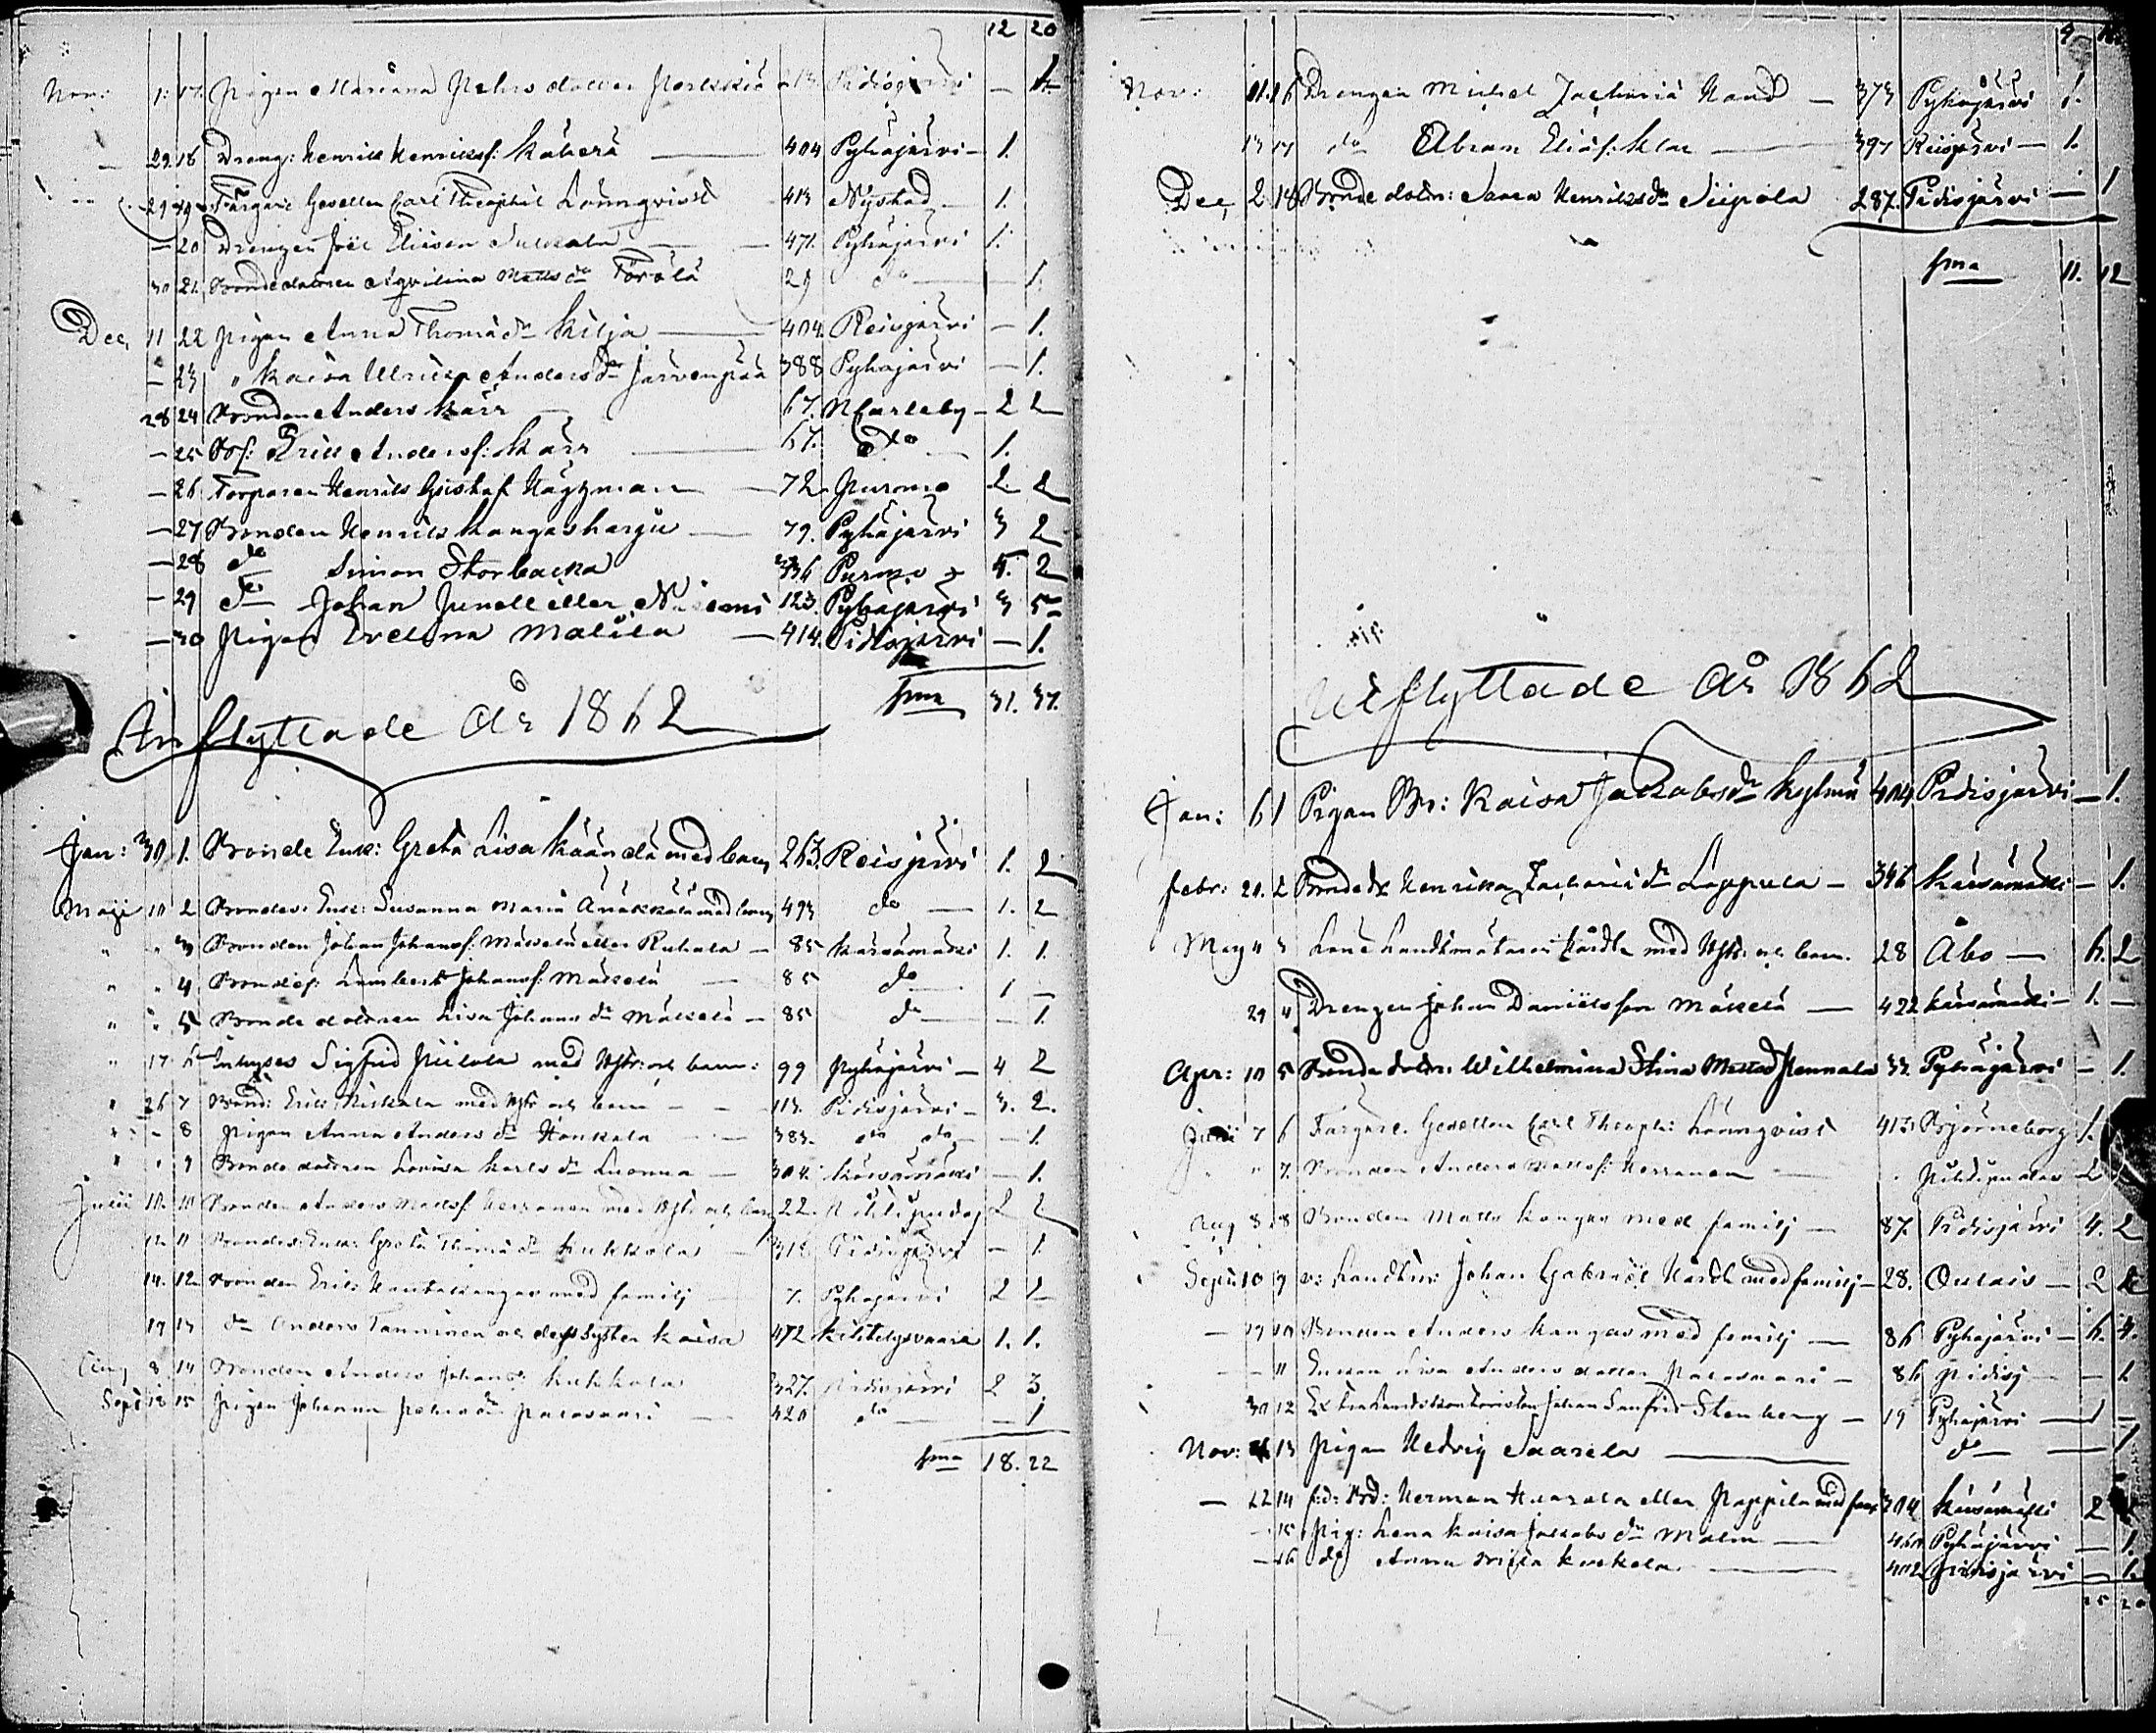 12 20
Nov: 1. 17. Pigan Mariana Pehrs dotter Pidisjärvi — 1.
— 29. 18 Dreng: Henrik Henriksf: Käherä — 404 Pyhäjärvi — 1.
29 19 Färgare Gesellen Carl Theophil Lönnqvist 413 Nystad — 1.
— 20 Drengen Joel Eliisson — 471. Pyhäjärvi 1.
30 21. Bondedottren Aqvilina Matts dr Törölä 29 do — 1.
Dec, 11 22 Pigan Anna Thomä dr Kilja — 404. Reisjärvi — 1.
— 23 " Kaisa Ulrika Anders dr Järvenpää 388 Pyhäjärvi — 1.
28 24 Bonden Anders Kärr 67. NCarleby — 2 2
— 25 Bsf: Erik Andersf: Kärr — 67. do — 1.
— 26 Torparen Henrik Gustaf Häggman — 72 Purmo 2 2
— 27 Bonden Henrik Kangasharju — 79. Pyhäjärvi 3 2
— 28 do Simon Storbacka 336 Purmo 5. 2
— 29 do Johan Junell eller Niemi 123. Pyhäjärvi 3 5
— 30 Pigan Evelina Malila — 414. Pidisjärvi — 1.
Sma 31. 37.
Inflyttade År 1862
Jan: 30 1. Bonde Enk: Greta Lisa Kääntä med barn 263. Reisjärvi 1. 2
Maji 10 2 Bondes Enk: Susanna Maria Anäkkälä med barn 493 do — 1. 2
" " 3 Bonden Johan Johansf: Mäkelä eller Ruhala — 85 Kärsämäki 1. 1.
" " 4 Bondes: Lambert Johansf: Mäkelä — 85 do 1 —
" " 5 Bonde dottren Lisa Johans dr Mäkelä — 85 do — 1.
" 17 6 Inhyses Sigfrid Piilola med Hstr: och barn: 99 Pyhäjärvi — 4 2
" 26 7 Bond: Erik Niskala med Hstr och barn — 113. Pidisjärvi — 3. 2.
" — 8 Pigan Anna Anders dr Hankala — 383. do do — 1.
" " 9 Bonde dottren Lovisa Karls dr Luoma — 304. Kärsämäki — 1.
Junii 10. 10 Bonden Anders Mattsf: Herranen med Hstr och barn 22. Pihtipudas 2 2
12 11 Bondes Enk: Greta Thomä dr Kukkola — Pidisjärvi — 1.
14. 12 Bonden Erik Hautakangas med familj 7. Pyhäjärvi 2 1
19 13 do Anders Tanninen och dess Syster Kaisa 472 Kihtelysvaara 1. 1.
Aug 8 14 Bonden Anders Johansf: Kukkola 327. Pidisjärvi 2 3
Sept 18 15 Pigan Johanna Pehrs dr Palosaari — 420 do — 1
Sma 18. 22
9
Nov: 11. 16 Drengen Michel Zachariä Hand — 373 Pyhäjärvi 1.
13 17 do Abram Eliaf: Klar — 397 Reisjärvi — 1.
Dec, 2 18 Bonde dottr: Sanna Henriks dr Siipola 287. Pidisjärvi — 1
Sma 11. 12
Utflyttade År 1862
Jan: 6 1 Pigan Br: Kaisa Jakobs dr Kylmä 404 Pidisjärvi — 1.
Febr: 21. 2 Bonde dr Henrika Zachariä dr Lappula — 346 Kärsämäki — 1.
May 11 3 Landtmätaren Hårdh med Hstr: och barn. 28 Åbo — 6. 2
29 4 Drengen Johan Danielsson Mäkelä — 422 Kärsämäki — 1. —
Apr: 10 5 Bonde dottr: Wilhelmina Stina Matts d Pennala 33. Pyhäjärvi — 1.
Junii 7 6 Färgare Gesellen Carl Theoph: Lönnqvist 413 Björneborg 1.
" " 7. Bonden Anders Mattsf: Herranen — Pihtipudas 2
Aug 8. 8 Bonden Matts Kangas med familj — 87. Pidisjärvi 4. 2
Sept: 10 9 v: Landtm: Johan Gabriel Hårdh med familj — 28. Oulais — 2
— 19 10 Bonden Anders Kangas med familj — 86 Pyhäjärvi — 6. 4.
— — 11 Enkan Lisa Anders dotter Palosaari — 86 Pidisj — 1
30 12 Extra Landtskontoristen Johan Sanfrid Stenberg — 19 Pyhäjärvi — 1 —
Nov: 13 Pigan Hedvig Saarela — do — 1
— 22 14 f:d: Bd: Herman Haarala eller Pappila med fam 304 Kärsämäki 2
— 15 Pig: Lena Kaisa Jakobs dr Malm — 460 Pyhäjärvi — 1.
— 16 do Anna Brita Koskela — 402 Pidisjärvi — 1.
25 20